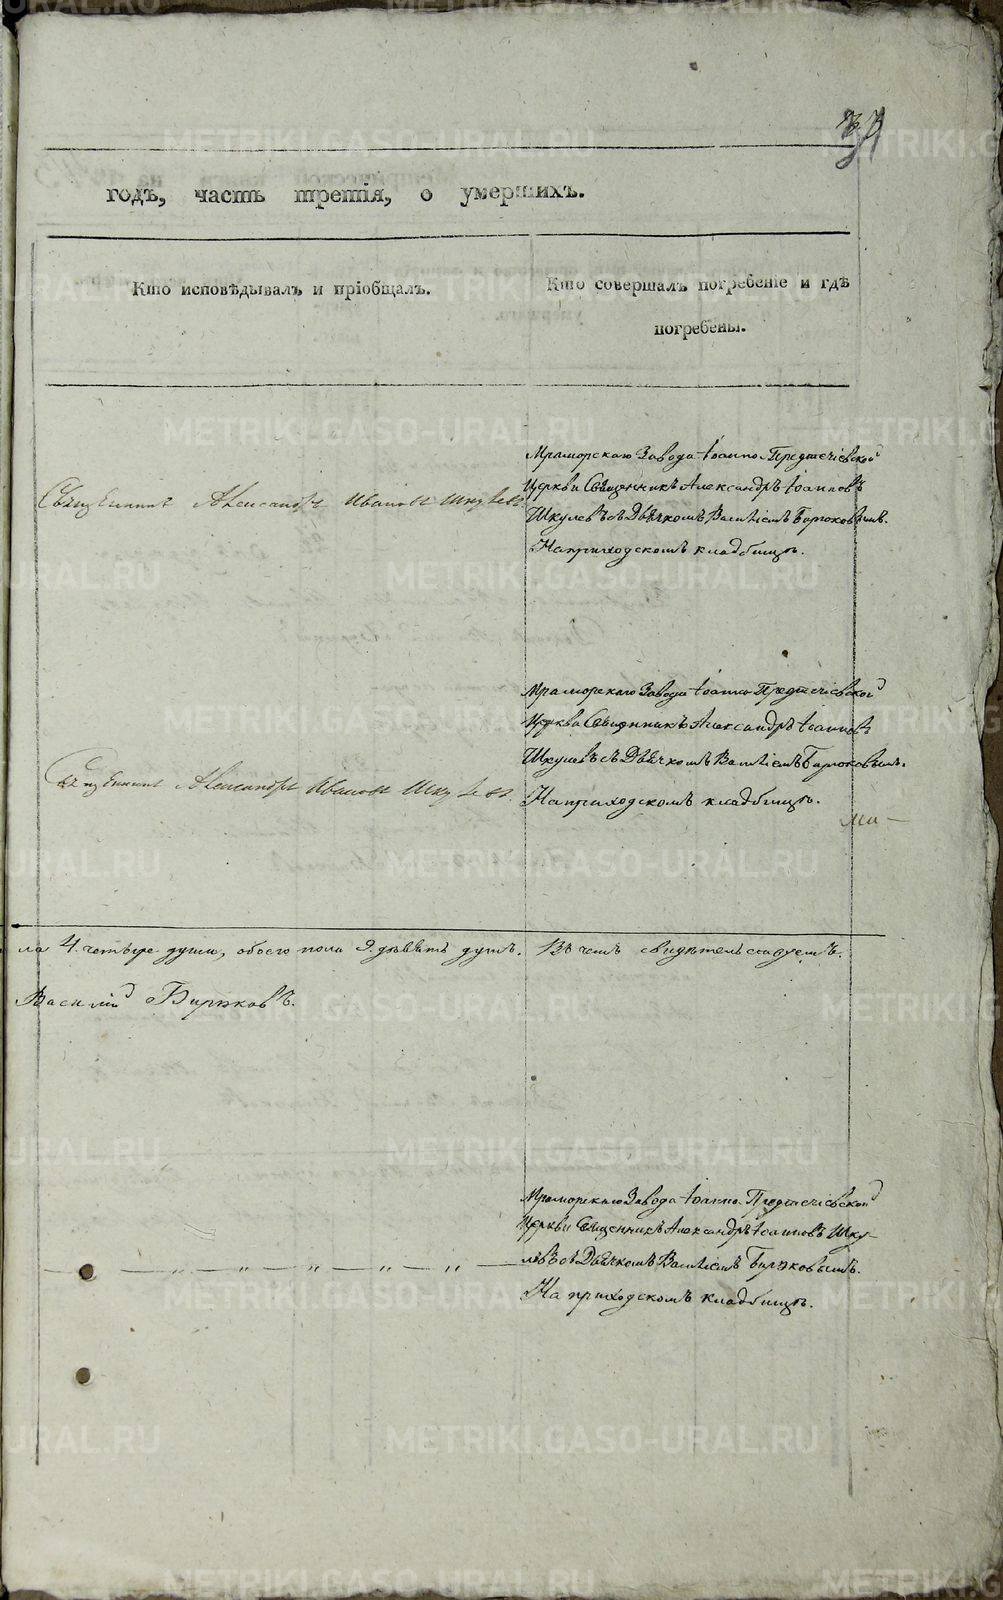 годъ, часть третія, о умершихъ.
Кто исповѣдывалъ и пріобщалъ.
Кто совершалъ погребеніе и гдѣ
погребены.
Мраморскаго Завода Іоанно-Предтечіевской
Церкви Священникъ Александръ Іоанновъ
Шкулевъ съ Дьячкомъ Васіліемъ Бирюковымъ.
На приходскомъ кладбищѣ.
Священникъ Александръ Ивановъ Шкулевъ
Мраморскаго Завода Іоанно-Предтечіевской
Церкви Священникъ Александръ Іоанновъ
Шкулевъ съ Дьячкомъ Васіліемъ Бирюковымъ.
На приходскомъ кладбищѣ.
Священникъ Александръ Ивановъ Шкулевъ.
ми —
ла 4. четыре души, обоего пола 9. девять душъ. Въ чемъ свидѣтельствуемъ.
Василій Бирюковъ.
Мраморскаго Завода Іоанно-Предтечіевской
Церкви Священникъ Александръ Іоанновъ Шку-
левъ съ Дьячкомъ Васіліемъ Бирюковымъ.
На приходскомъ кладбищѣ.
— „ — „ — „ — „ — „ —
METRIKI.GASO-URAL.RU